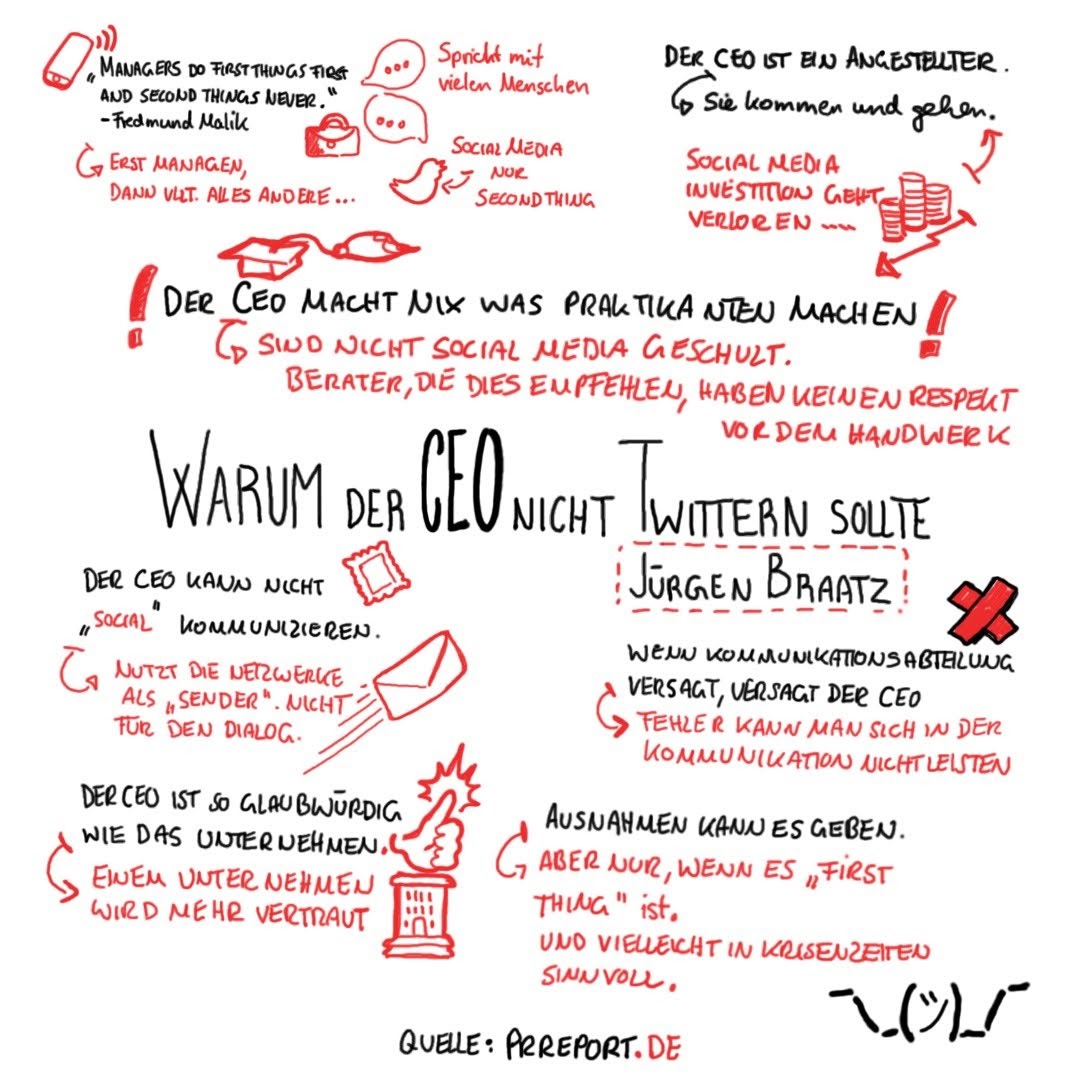 „Managers do first things first
and second things never."
- Fredmund Malik
Erst managen,
dann vllt. alles andere...
Spricht mit
vielen Menschen
Social Media
nur
second thing
Der CEO ist ein Angestellter.
Sie kommen und gehen.
Social Media
Investition geht
verloren .....
Der CEO macht nix was Praktikanten machen
Sind nicht Social Media geschult.
Berater, die dies empfehlen, haben keinen Respekt
vor dem Handwerk
Warum der CEO nicht Twittern sollte
Jürgen Braatz
Der CEO kann nicht
„social" kommunizieren.
Nutzt die Netzwerke
als „Sender". Nicht
für den Dialog.
Wenn Kommunikationsabteilung
versagt, versagt der CEO
Fehler kann man sich in der
Kommunikation nicht leisten
Der CEO ist so glaubwürdig
wie das Unternehmen.
Einem Unternehmen
wird mehr vertraut
Ausnahmen kann es geben.
Aber nur, wenn es „first
thing" ist.
Und vielleicht in Krisenzeiten
sinnvoll.
¯\_(ツ)_/¯
Quelle: PRREPORT.DE